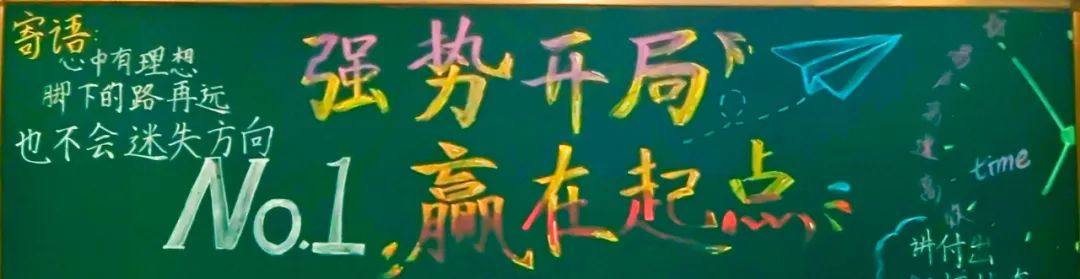 寄语:
心中有理想
脚下的路再远
也不会迷失方向
强势开局
No.1 赢在起点
time
讲付出